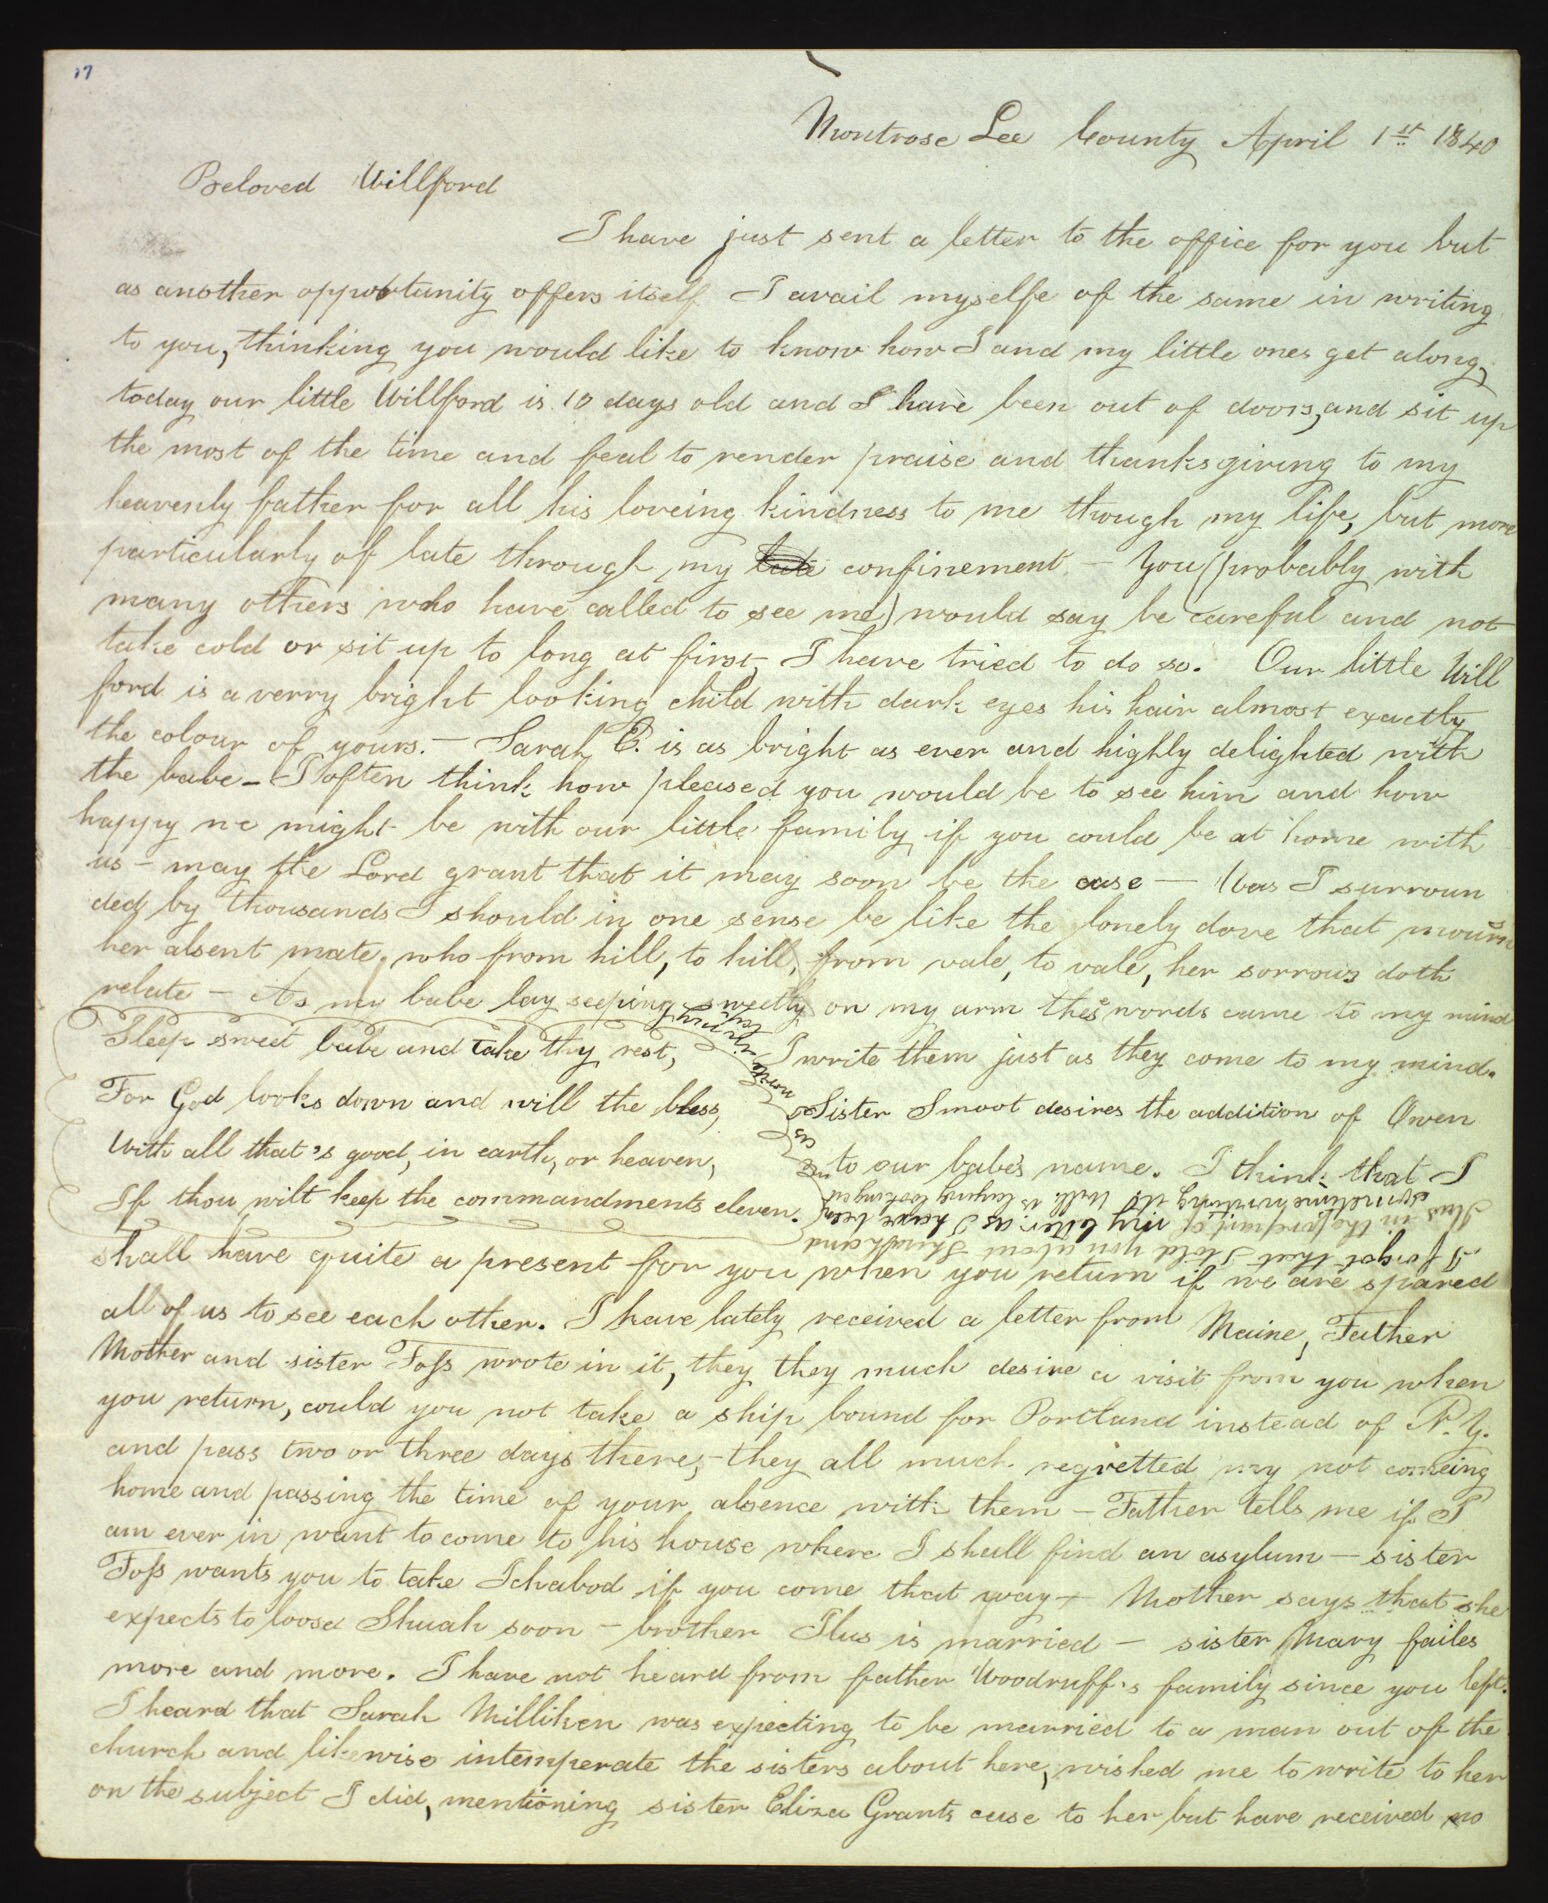 17
Montrose Lee County April 1st 1840
Beloved Willford
I have just sent a letter to the office for you but
as another opportunity offers itself I avail myselfe of the same in writing
to you, thinking you would like to know how I and my little ones get along,
today our little Willford is 10 days old and I have been out of doors, and sit up
the most of the time and feal to render praise and thanksgiving to my
heavenly father for all his loveing kindness to me though my life, but more
particularly of late through my late confinement – You (probably with
many others who have called to see me) would say be careful and not
take cold or sit up to long at first, I have tried to do so. Our little Will
ford is a verry bright looking child with dark eyes his hair almost exactly
the colour of yours. – Sarah E. is as bright as ever and highly delighted with
the babe – I often think how pleased you would be to see him and how
happy we might be with our little family if you could be at home with
us – may the Lord grant that it may soon be the case – Was I surroun
ded by thousands I should in one sense be like the lonely dove that mourns
her absent mate, who from hill, to hill, from vale, to vale, her sorrows doth
relate – As my babe lay seeping sweetly on my arm thes words came to my mind
Sleep sweet babe and take thy rest,
For God looks down and will the bless,
With all that's good, in earth, or heaven,
If thou wilt keep the commandments eleven.
I write them just as they come to my mind.
Sister Smoot desires the addition of Owen
to our babe's name. I think that I
shall have quite a present for you when you return if we are spared
all of us to see each other. I have lately received a letter from Maine, Father
Mother and sister Foss wrote in it, they they much desire a visit from you when
you return, could you not take a ship bound for Portland instead of N.Y.
and pass two or three days there, – they all much regretted my not comeing
home and passing the time of your absence with them – Father tells me if I
am ever in want to come to his house where I shall find an asylum – sister
Foss wants you to take Ichabod if you come that way – Mother says that she
expects to loose Shuah soon – brother Ilus is married – sister Mary failes
more and more. I have not heard from father Woodruff's family since you left.
I heard that Sarah Milliken was expecting to be married to a man out of the
church and likewise intemperate the sisters about here, wished me to write to her
on the subject I did, mentioning sister Eliza Grants case to her but have received no
I forgot that I told you about Shuah and
Ilus in the forepart of my letter as I have been
sometime writing it Will is laying looking at
me as I write trying